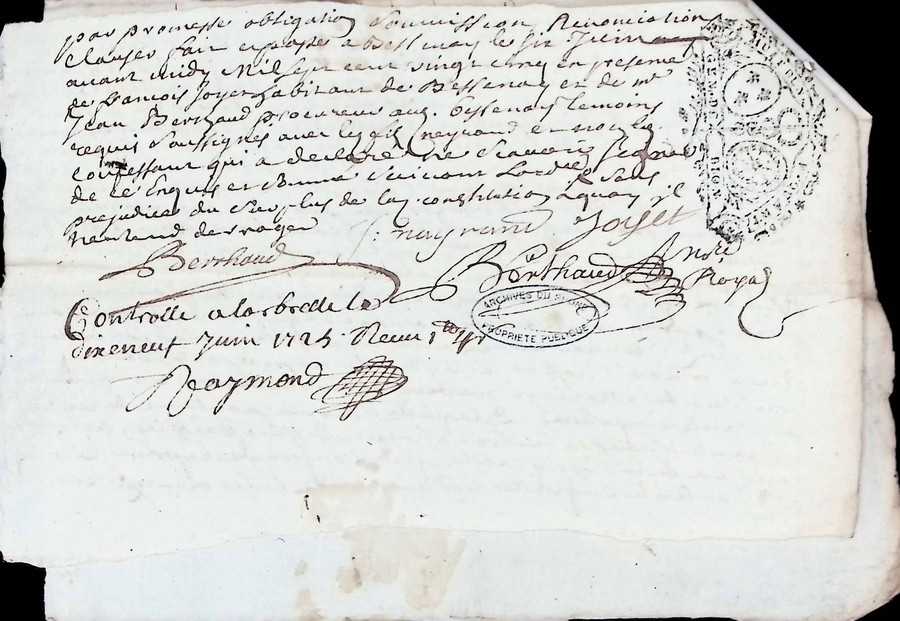 par promesse obligation soumission Renonciation
clauses fait et passé a Bessenay le six Juin
avant midy Mil sept cent vingt cinq en presence
de francois Joyet habitant de Bessenay et de mr
Jean Berthaud procureur aud. Bessenay temoins
requis soussignes avec led. Sr neyrand et non le
confessant qui a declaré ne scavoir signer
de ce enquis et sommé suivant Lord. sans
prejudice du surplus de la constitution a quoy il
n'entend derroger
neyrand Joyet
Berthaud Berthaud No.re Royal
Controllé a larbrelle le
dixeneuf Juin 1725. Receu
Raymond
ARCHIVES DU RHONE
PROPRIETE PUBLIQUE